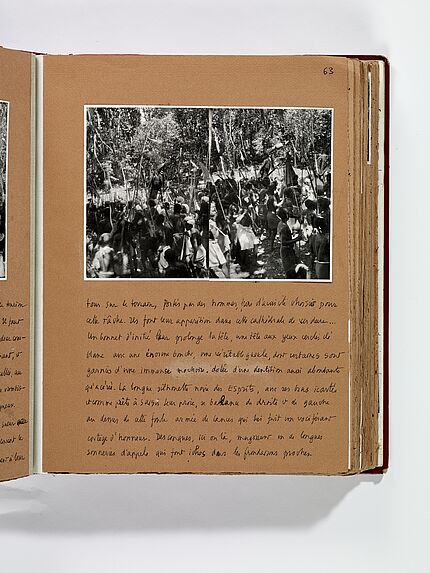 63
tous sur le terrain, portés par des hommes, choisis pour
cette tâche. Ils font leur apparition dans cette cathédrale de verdure...
Un bonnet d'initié leur prolonge la tête, une tête aux yeux cerclés de
blanc avec une énorme bouche, une véritable gueule, dont certaines sont
garnies d'une immense machoire, dotée d'une dentition aussi abondante
qu'acérée. La longue silhouette noire des Esprits, avec ses bras écartés
et comme prête à saisir leur proie, se balance de droite et de gauche
au dessus de cette foule armée de lances qui lui fait un vociférant
cortège d'honneur. Des conques, ici ou là, mugissent en de longues
sonneries d'appels qui font échos dans les frondaisons proches